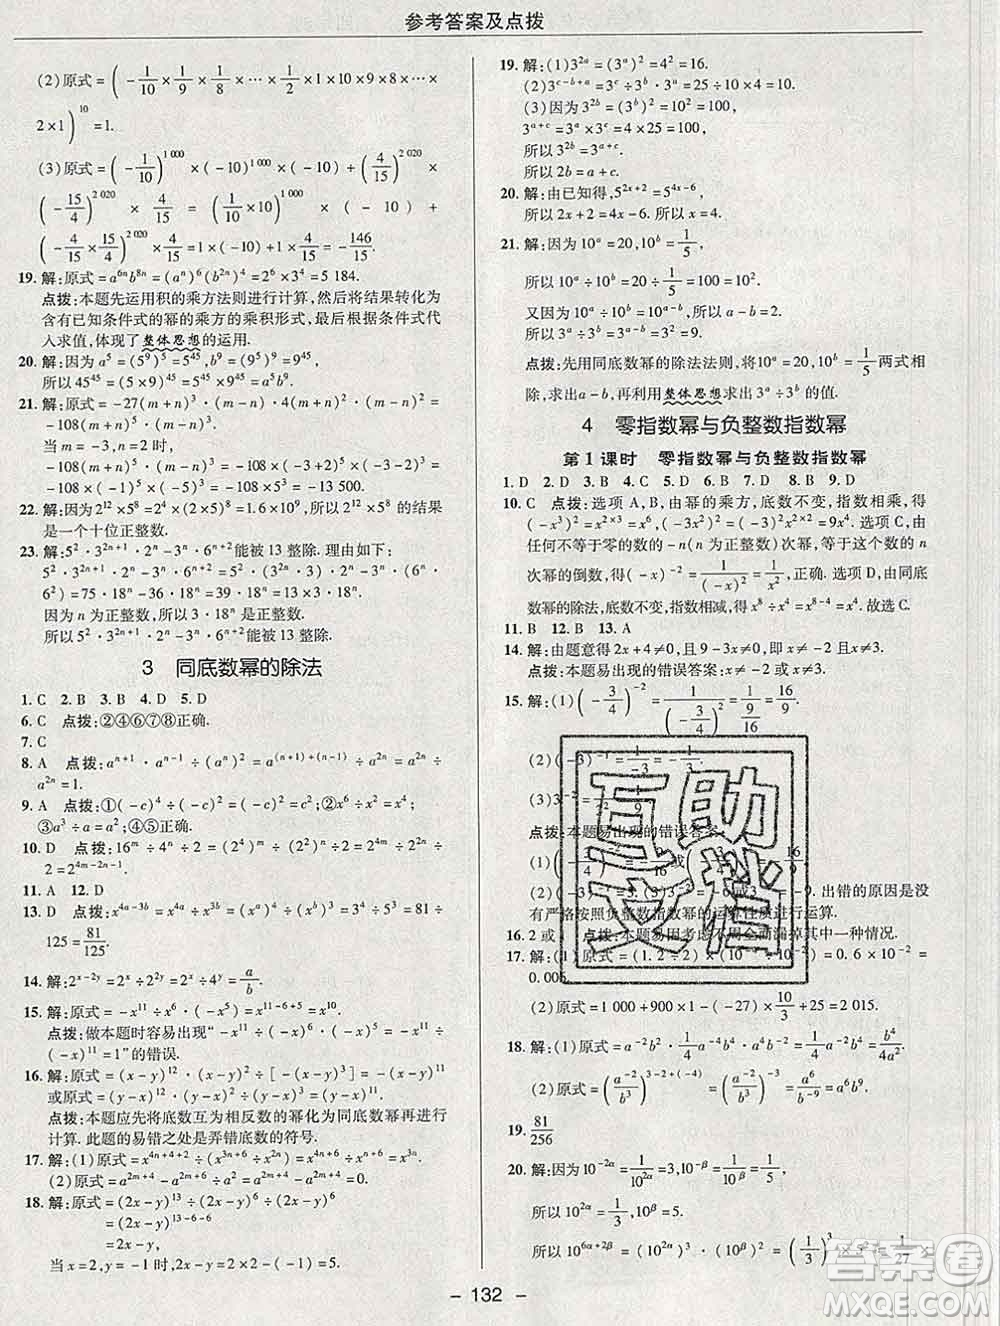 参考答案及点拨
(2)原式=(-1/10×1/9×1/8×…×1/2×1)^10×(10×9×8×…×
2×1)^10=1.
19. 解:原式=a^{6n}b^{8n}=(a^n)^6(b^{2n})^4=2^6×3^4=5 184.
点拨:本题先运用积的乘方法则进行计算,然后将结果转化为
含有已知条件式的幂的乘方的乘积形式,最后根据条件式代
入求值,体现了整体思想的运用.
20. 解:因为a^5=(5^9)^5=5^{45},b^9=(9^5)^9=9^{45},
所以45^{45}=(5×9)^{45}=5^{45}×9^{45}=a^5b^9.
21. 解:原式=-27(m+n)^3·(m-n)·4(m+n)^2·(m-n)^2=
-108(m+n)^5(m-n)^3.
当m=-3,n=2时,
-108(m+n)^5(m-n)^3=-108×(-3+2)^5×(-3-2)^3=
-108×(-1)^5×(-5)^3=-13 500.
是一个十位正整数.
23. 解:5^2·3^{2n+1}·2^n-3^n·6^{n+2}能被13整除.理由如下:
5^2·3^{2n+1}·2^n-3^n·6^{n+2}=5^2·(3^{2n}·3)·2^n-3^n·(6^n·
6^2)=75·18^n-36·18^n=39·18^n=13×3·18^n.
因为n为正整数,所以3·18^n是正整数.
所以5^2·3^{2n+1}·2^n-3^n·6^{n+2}能被13整除.
3 同底数幂的除法
1. C 2. B 3. B 4. D 5. D
6. C 点拨:②④⑥⑦⑧正确.
7. C
8. A 点拨:a^{n+1}·a^{n-1}÷(a^n)^2=a^{(n+1)+(n-1)}÷a^{2n}=a^{2n}÷
a^{2n}=1.
9. A 点拨:①(-c)^4÷(-c)^2=(-c)^2=c^2;②
③a^3÷a=a^2;④⑤正确.
10. D 点拨:16^m÷4^n÷2=(2^4)^m÷(2^2)^n÷2=2^{4m}÷2^{2n}÷
11. A 12. D
13. D 点拨:x^{4a-3b}=x^{4a}÷x^{3b}=(x^a)^4÷(x^b)^3=3^4÷5^3=81÷
125=81/125.
14. 解:2^{x-2y}=2^x÷2^{2y}=2^x÷4^y=a/b.
15. 解:原式=-x^{11}÷x^6·(-x^5)=x^{11-6+5}=x^{10}.
点拨:做本题时容易出现“-x^{11}÷(-x)^{11}=x^{11}÷
(-x)^{11}=1”的错误.
16. 解:原式=(x-y)^{12}·(x-y)^2÷[-(x-y)^3]=-(x-y)^{11}
或原式=(y-x)^{12}·(y-x)^2÷(y-x)^3=(y-x)^{11}.
点拨:本题应先将底数互为相反数的幂化为同底数幂再进行
计算.此题的易错之处是弄错底数的符号.
17. 解:(1)原式=x^{4n+4+2}÷x^{n+6}=x^{4n+6-(n+6)}=x^{4n+6-n-6}=x^{3n}.
(2)原式=a^{2m+4}-a^{2m+4}=0.
18. 解:原式=(2x-y)^{13}÷(2x-y)^6÷(2x-y)^6
=(2x-y)^{13-6-6}
=2x-y.
当x=2,y=-1时,原式=2×2-(-1)=5.
19. 解:(1)3^{2a}=(3^a)^2=4^2=16.
(2)3^{c-b+a}=3^c÷3^b·3^a=25÷10×4=10.
(3)因为3^{2b}=(3^b)^2=10^2=100,
3^{a+c}=3^a×3^c=4×25=100,
所以3^{2b}=3^{a+c}.
所以2b=a+c.
20. 解:由已知得,5^{2x+2}=5^{4x-6},
所以2x+2=4x-6.所以x=4.
21. 解:因为10^a=20,10^b=1/5,
所以10^a÷10^b=20÷1/5=100=10^2.
又因为10^a÷10^b=10^{a-b},所以a-b=2.
所以3^a÷3^b=3^{a-b}=3^2=9.
点拨:先用同底数幂的除法法则,将10^a=20,10^b=1/5两式相
除,求出a-b,再利用整体思想求出3^a÷3^b的值.
4 零指数幂与负整数指数幂
第1课时 零指数幂与负整数指数幂
1. D 2. D 3. B 4. B 5. B 6. D 7. D 8. D 9. D
10. C 点拨:选项A,B,由幂的乘方,底数不变,指数相乘,得
(-x^3)^2=x^{3×2}=x^6,(-3x^2)^2=9x^{2×2}=9x^4.选项C,由
任何不等于零的数的-n(n为正整数)次幂,等于这个数的n
次幂的倒数,得(-x)^{-2}=1/(-x)^2=1/x^2.选项D,由同底
数幂的除法,底数不变,指数相减,得x^8÷x^4=x^{8-4}=x^4.故选C.
11. B 12. B 13. A
14. 解:由题意得2x+4≠0,且9-3x≠0,即x≠-2且x≠3.
点拨:本题易出现的错误答案:x≠-2或x≠3.
15. 解:(1)(-3/4)^{-2}=1/(-3/4)^2=1/(9/16)=16/9.
(2)(-3)^{-1}=1/-3=-1/3.
点拨:本题易出现的错误答案:
出错的原因是没
有严格按照负整数指数幂的运算性质进行运算.
16. 2或 点拨:本题易因考虑不周全而漏掉其中一种情况.
17. 解:(1)原式=(1.2÷2)×10^{-2}=0.6×10^{-2}=
0.006.
(2)原式=1 000+900×1-(-27)×10/3+25=2 015.
18. 解:(1)原式=a^{-2}b^2·1/4a^{-4}b^{-4}
19. 81/256
20. 解:因为10^{-2α}=1/10^{2α}=3,10^{-β}=1/10^β=1/5,
所以10^{2α}=1/3,10^β=5.
所以10^{6α+2β}=(10^{2α})^3·(10^β)^2=(1/3)^3×5^2=1/27×
- 132 -
互助文档
答案圈
MXQE.COM